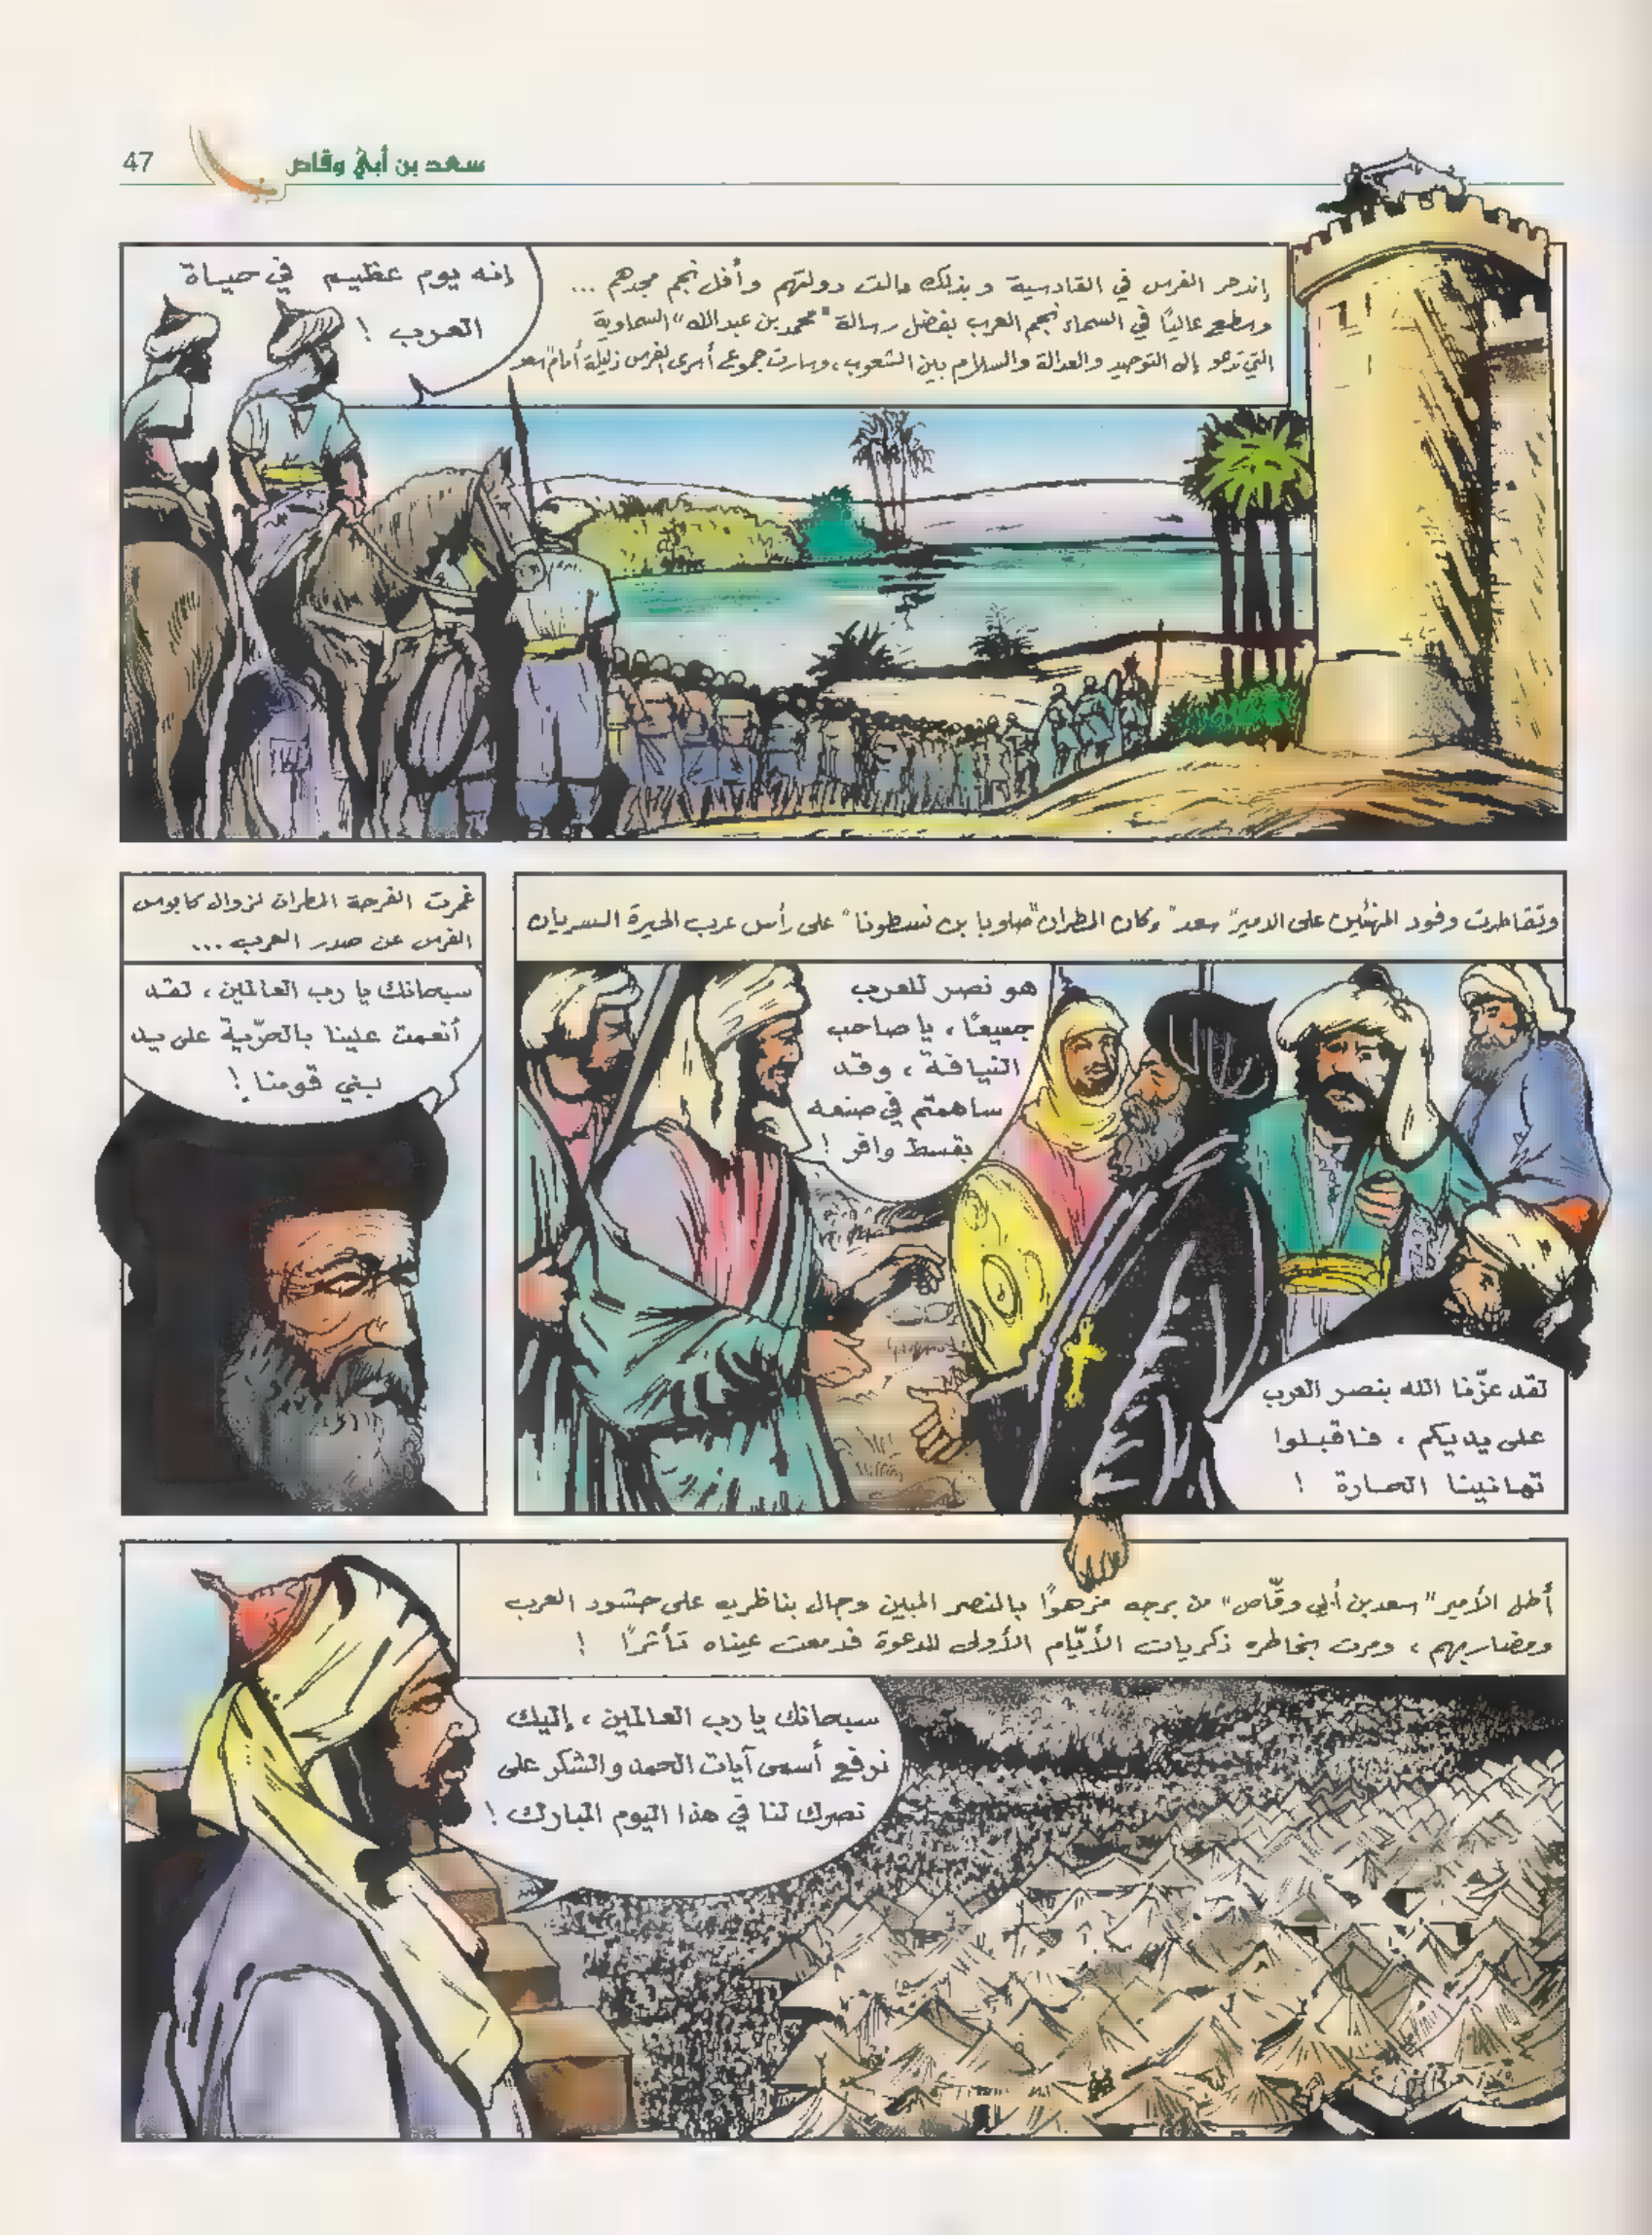 47
سعد بن أبي وقاص
إندحر الفرس في القادسية وبذلك دالت دولتهم وأفل نجم مجدهم ...
وسطع عاليًا في السماء نجم العرب بفضل رسالة "محمد بن عبد الله" السماوية
التي تدعو إلى التوحيد والعدالة والسلام بين الشعوب، وسارت جموع أسرى الفرس ذليلة أمام سعد
إنه يوم عظيم في حياة
العرب !
وتقاطرت وفود المهنئين على الامير "سعد" وكان المطران "صلوبا بن نسطونا" على رأس عرب الحيرة السريان
هو نصر للعرب
جميعًا، يا صاحب
النيافة، وقد
ساهمتم في صنعه
بقسط وافر !
لقد عزّنا الله بنصر العرب
على يديكم، فاقبلوا
تهانينا الحارة !
غمرت الفرحة المطران لزوال كابوس
الفرس عن صدر العرب ...
سبحانك يا رب العالمين، لقد
أنعمت علينا بالحرّية على يد
بني قومنا !
أطل الأمير "سعد بن أبي وقّاص" من برجه مزهوًا بالنصر المبين وجال بناظريه على حشود العرب
ومضاربهم، ومرت بخاطره ذكريات الأيّام الأولى للدعوة فدمعت عيناه تأثرًا !
سبحانك يا رب العالمين، إليك
نرفع أسمى آيات الحمد والشكر على
نصرك لنا في هذا اليوم المبارك !